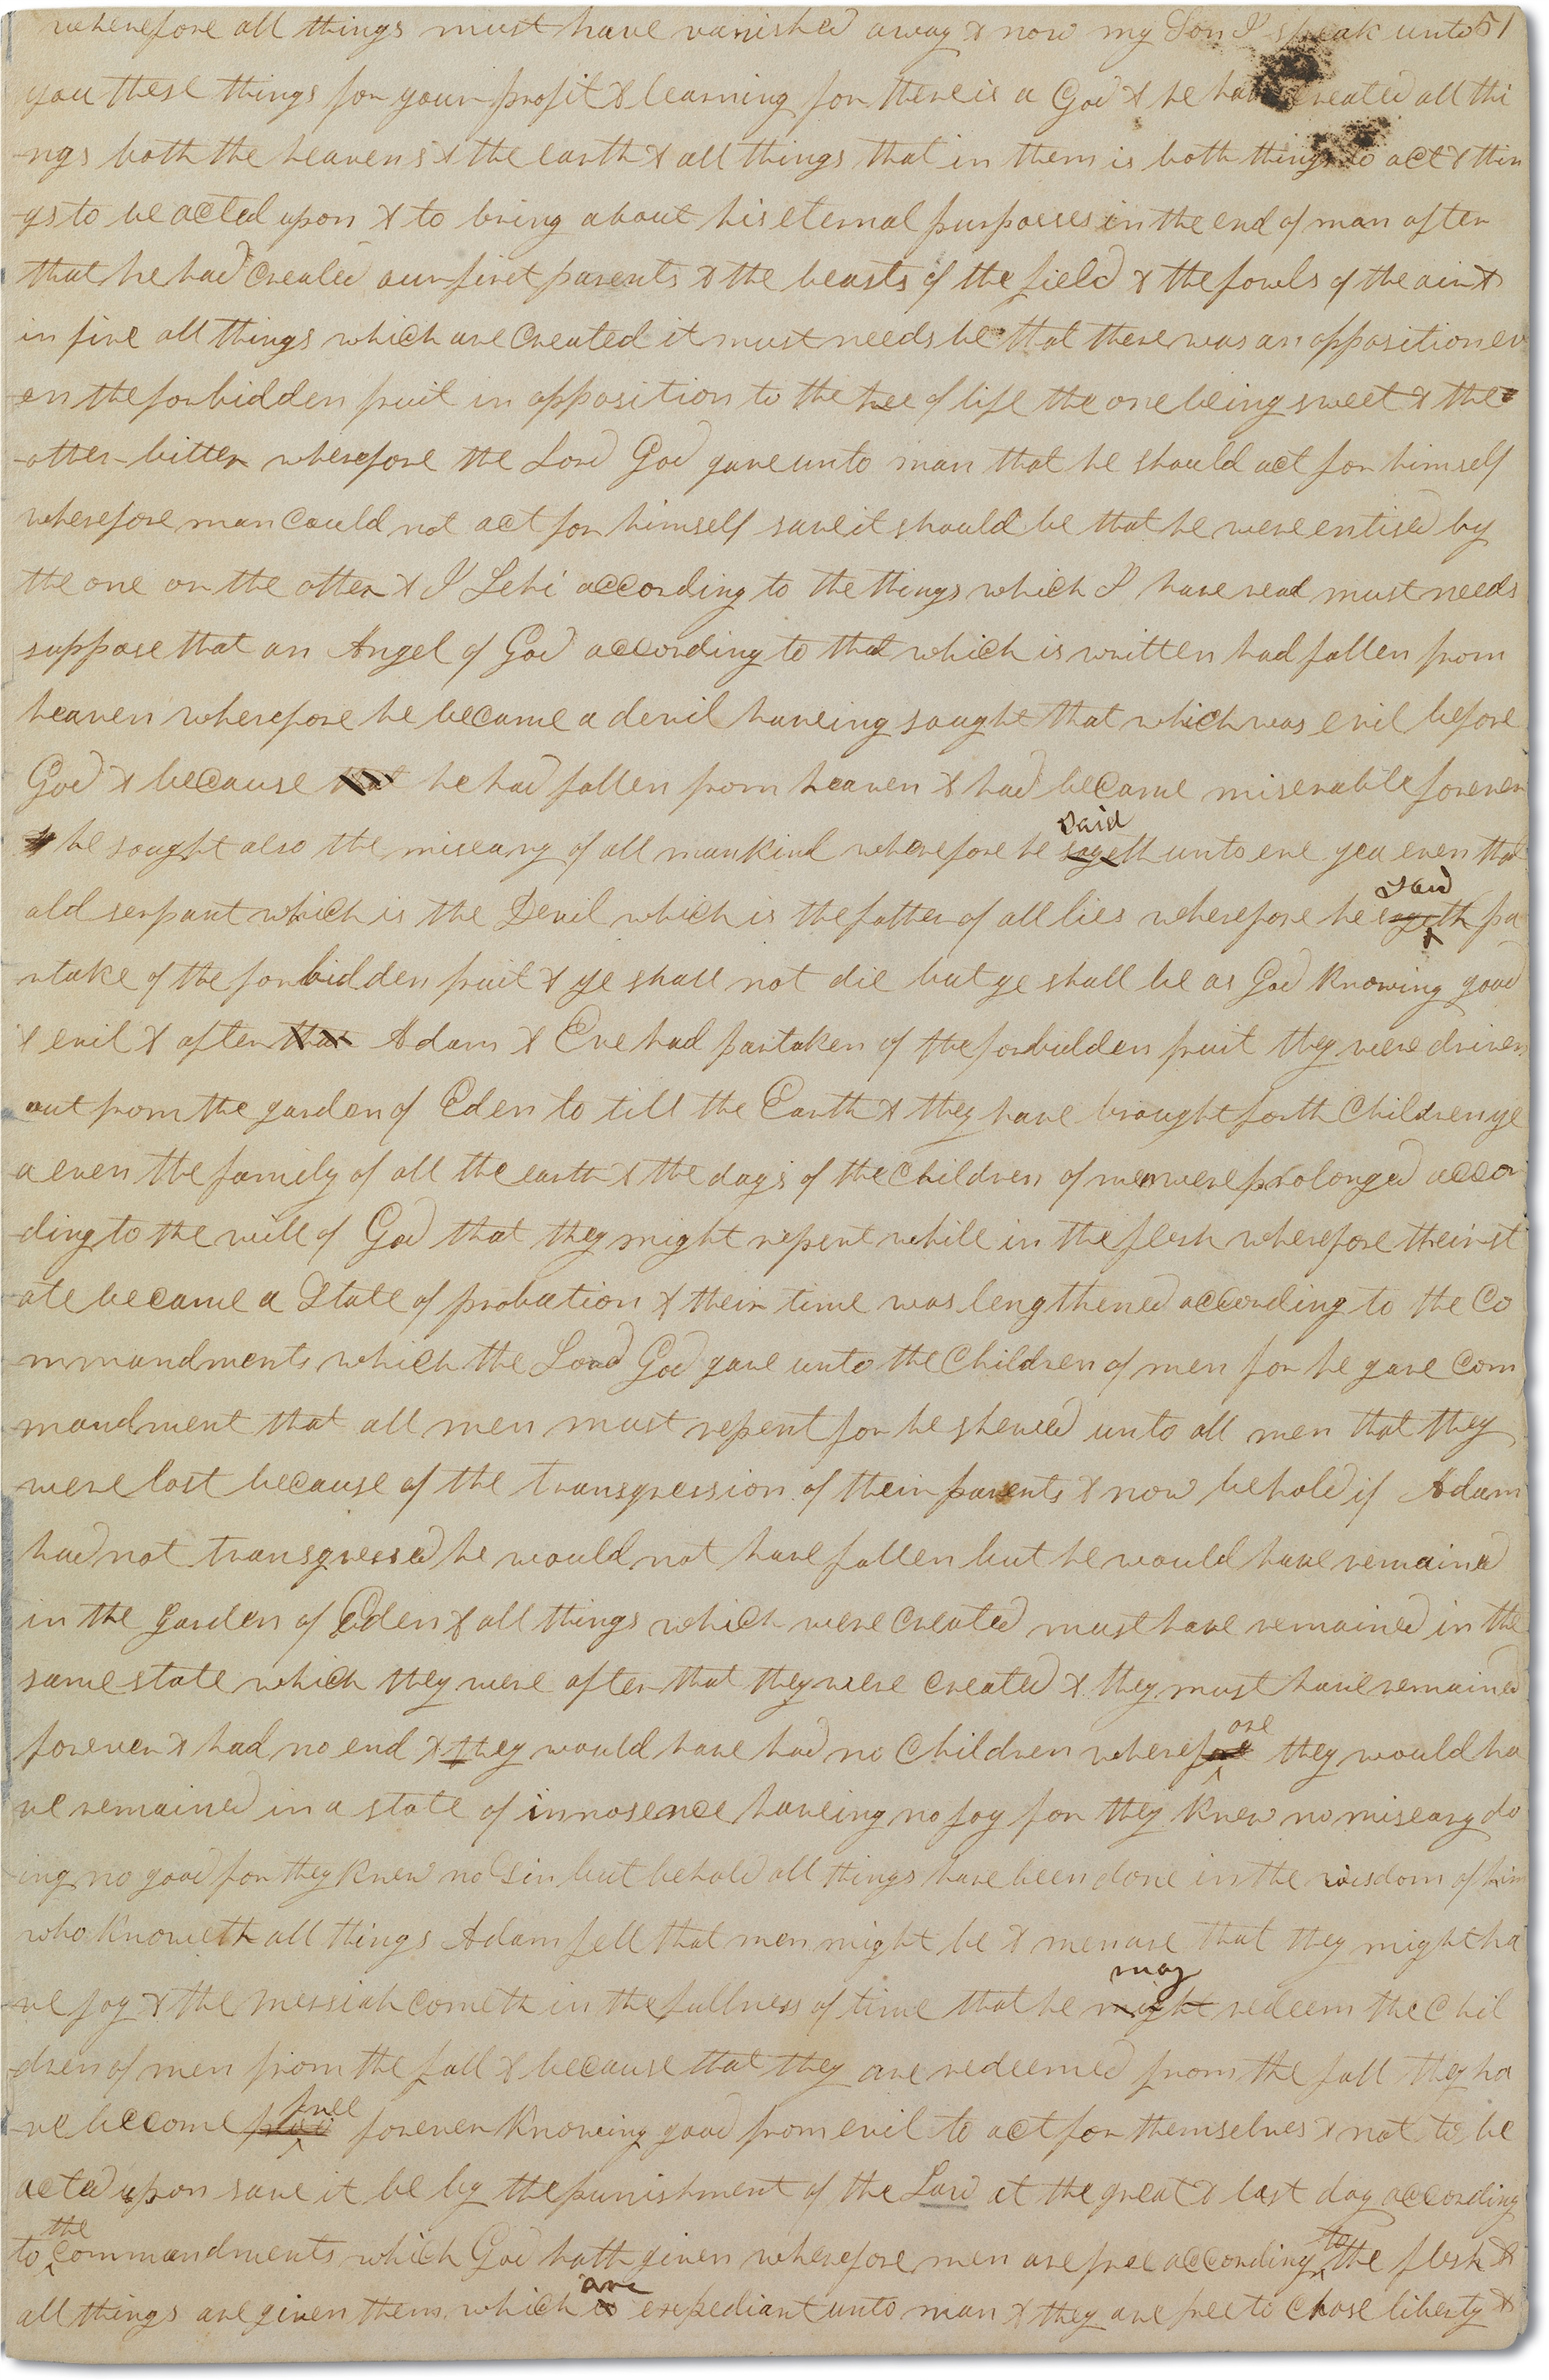 wherefore all things must have vanished away & now my Son I speak unto 51
you these things for your profit & learning for there is a God & he hath created all thi
ngs both the heavens & the earth & all things that in them is both things to act & thin
gs to be acted upon & to bring about his eternal purposes in the end of man after
that he had created our first parents & the beasts of the field & the fowls of the air &
in fine all things which are created it must needs be that there was an opposition ev
en the forbidden fruit in opposition to the tree of life the one being sweet & the
other bitter wherefore the Lord God gave unto man that he should act for himself
wherefore man could not act for himself save it should be that he were entised by
the one or the other & I Lehi according to the things which I have read must needs
suppose that an Angel of God according to that which is written had fallen from
heaven wherefore he became a devil haveing sought that which was evil before
God & because that he had fallen from heaven & had became miserable forever
& he sought also the miseary of all mankind wherefore he sayeth said unto eve yea even that
old serpant which is the Devil which is the father of all lies wherefore he sayeth said pa
rtake of the forbidden fruit & ye shall not die but ye shall be as God knowing good
& evil & after that Adam & Eve had partaken of the forbidden fruit they were driven
out from the garden of Eden to till the Earth & they have brought forth children ye
a even the family of all the earth & the days of the children of men were prolonged accor
ding to the will of God that they might repent while in the flesh wherefore their st
ate became a State of probation & their time was lengthened according to the co
mmandments which the Lord God gave unto the children of men for he gave com
mandment that all men must repent for he shewed unto all men that they
were lost because of the transgression of their parents & now behold if Adam
had not transgressed he would not have fallen but he would have remained
in the garden of Eden & all things which were created must have remained in the
same state which they were after that they were created & they must have remained
forever & had no end & they would have had no children wherefore they would ha
ve remained in a state of innosence haveing no joy for they knew no miseary do
ing no good for they knew no Sin but behold all things have been done in the wisdom of him
who knoweth all things Adam fell that men might be & men are that they might ha
ve joy & the messiah cometh in the fullness of time that he might may redeem the chil
dren of men from the fall & because that they are redeemed from the fall they ha
ve become free forever knowing good from evil to act for themselves & not to be
acted upon save it be by the punishment of the Lord at the great & last day according
to the commandments which God hath given wherefore men are free according to the flesh &
all things are given them which is are expediant unto man & they are free to chose liberty &